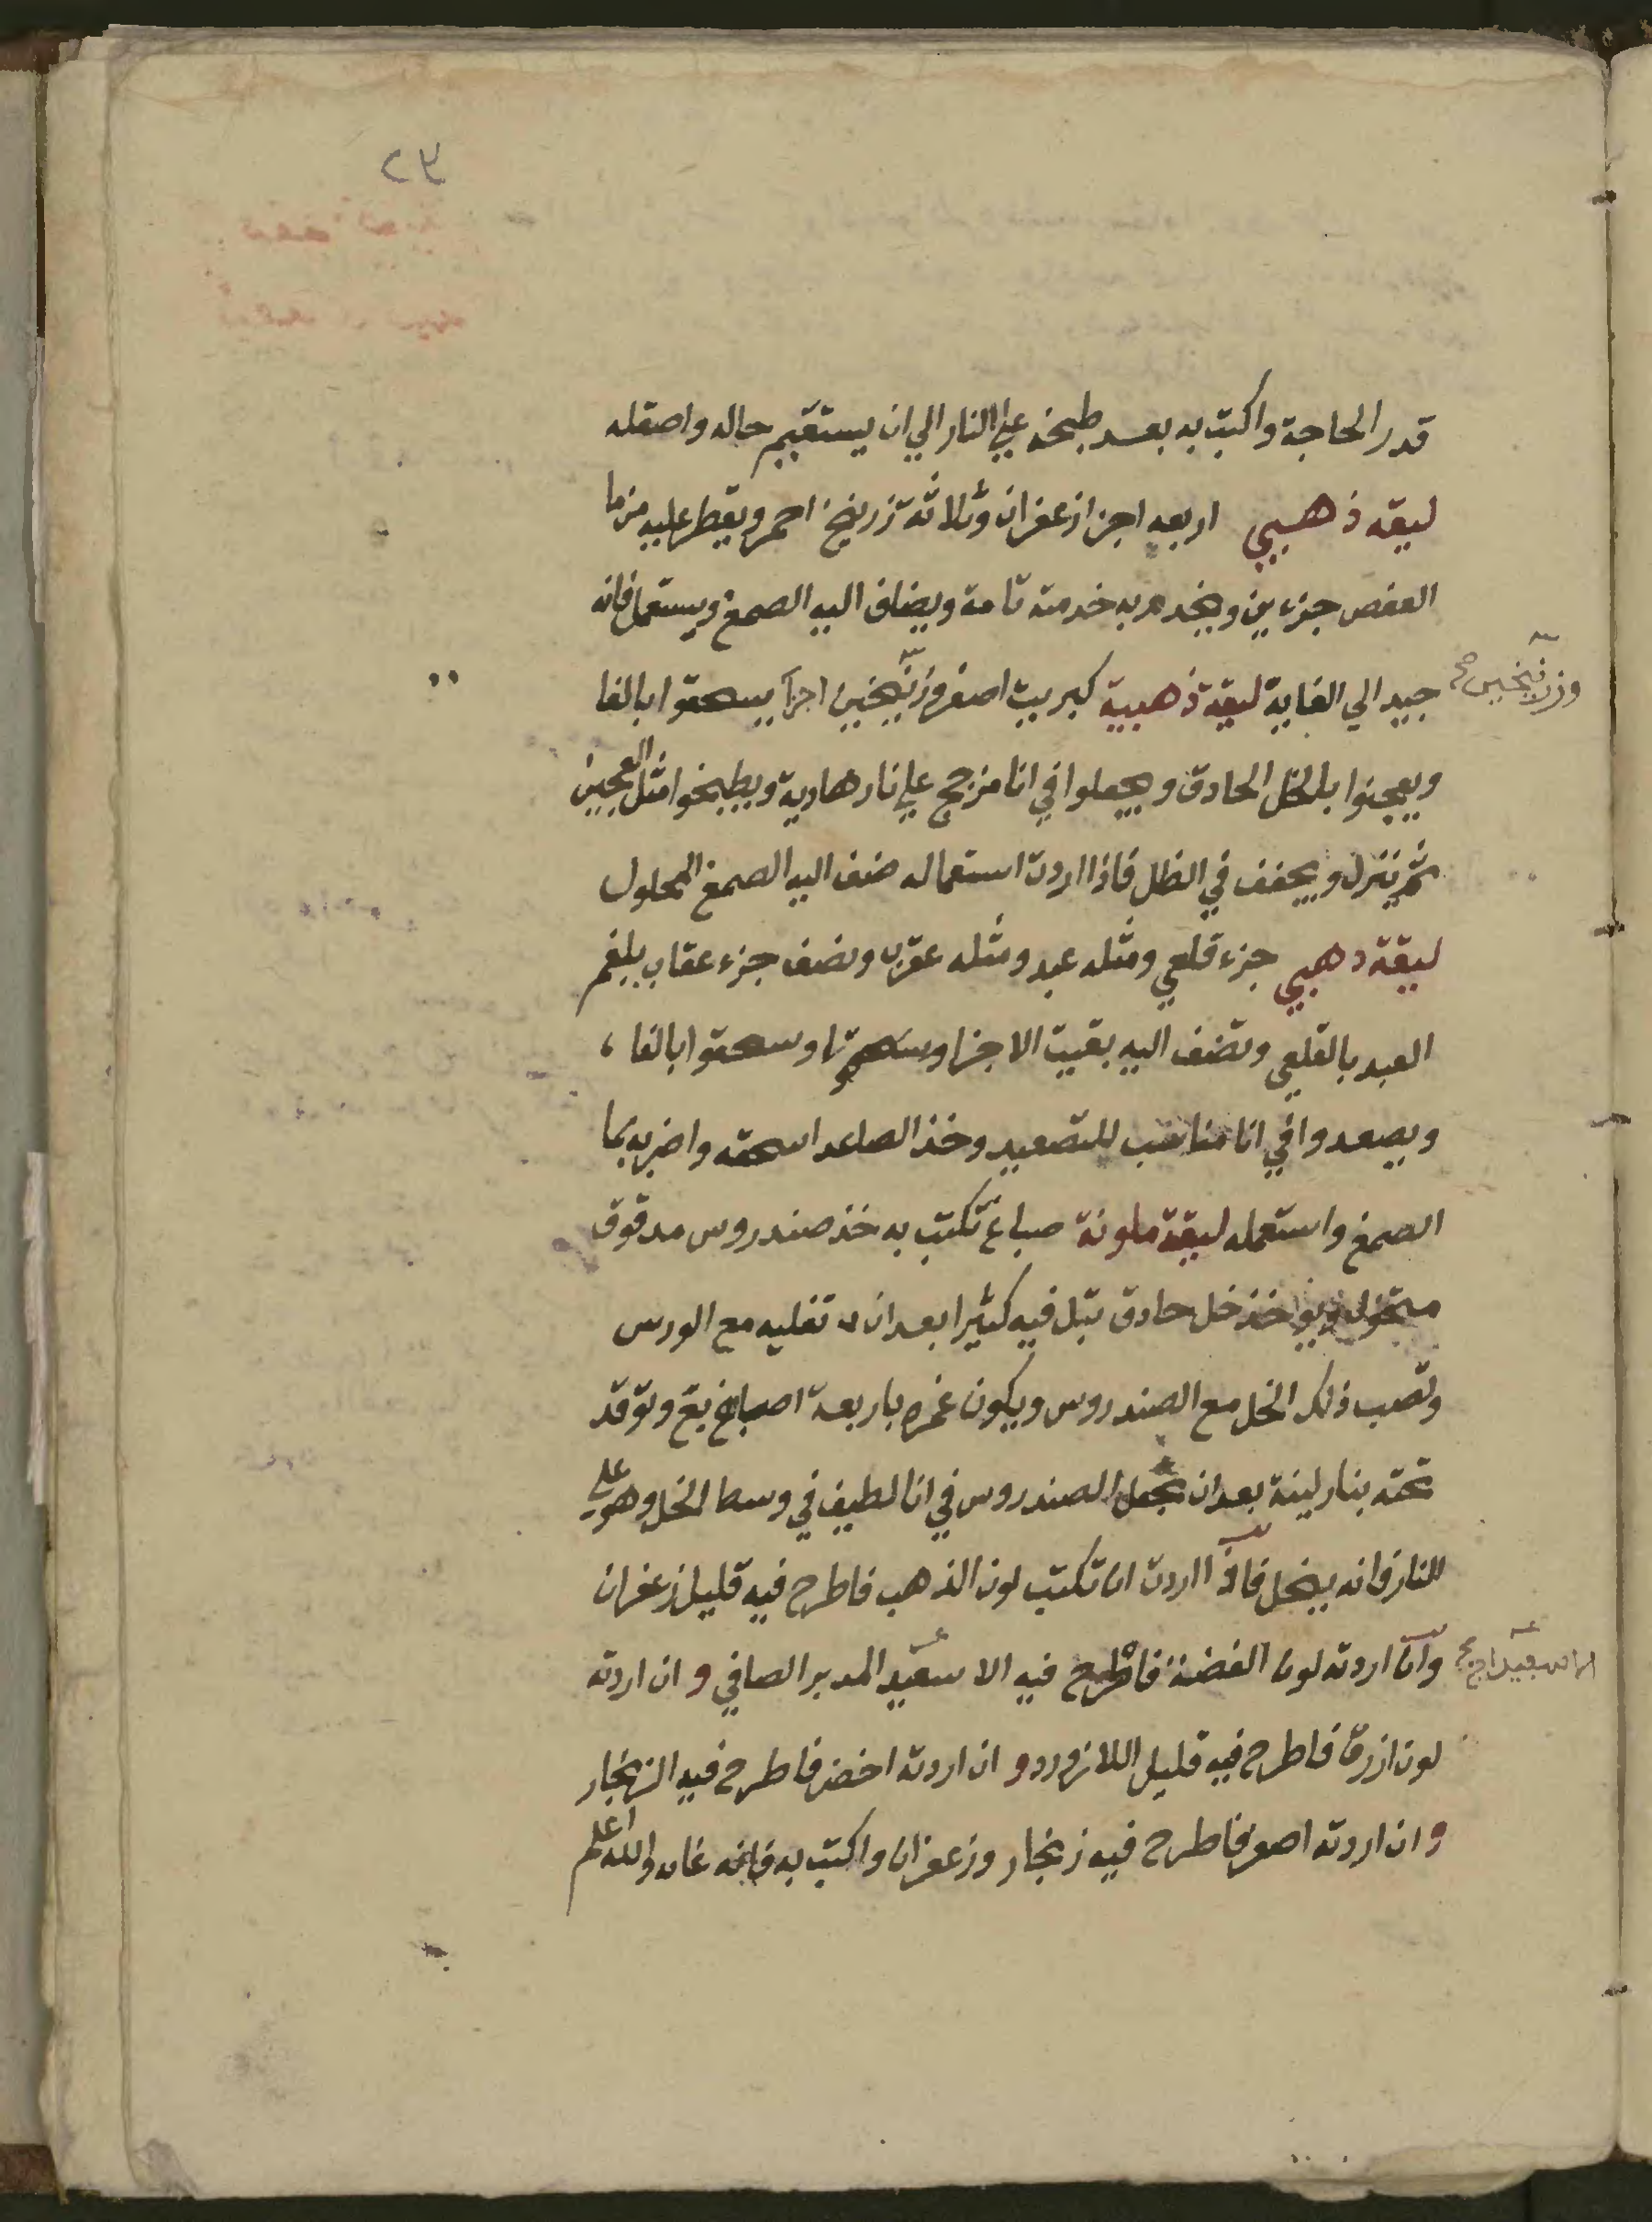 ٢٣
قدر الحاجة واكتب به بعد طبخه علي النار الي ان يستقيم حاله واصقله
ليقه ذهبي اربعه اجزا زعفران وثلاثة زرنيخ احمر ويقطر عليه من ما
العفص جزءين ويخدم به خدمة تامة ويضاف اليه الصمغ ويستعمل فانه
جيد الي الغاية ليقة ذهبية كبريت اصفر وزنيخين اجزآ يسحقوا بالغا
وزرنيخين صح
ويعجنوا بالخل الحادق ويجعلوا في انا مزجج علي نار هادية ويطبخوا مثل العجين
ثم ينزل ويجفف في الظل فاذا اردت استعماله ضف اليه الصمغ المحلول
ليقة دهبي جزء قلعي ومثله عبد ومثله عقرب ونصف جزء عقاب يلغم
العبد بالقلعي وتضف اليه بقيت الاجزا وسحقوا بالغا
ويصعدوا في انا مناسب للتصعيد وخذ الصاعد اسحقه واضربه بما
الصمغ واستعمله ليقة ملونة صباغ تكتب به خذ صندروس مدقوق
منخول وخذ خل حادق تبل فيه كثيرا بعد ان تغليه مع الورس
وتصب ذلك الخل مع الصندروس ويكون غمره باربعة اصبابع وتوقد
تحته بنار لينة بعد ان تجعل الصندروس في انا لطيف في وسط الخل وهو علي
النار فانه ينحل فاذآ اردت ان تكتب لون الذهب فاطرح فيه قليل زعفران
وآن اردته لون الفضة فاطرح فيه الا سعيد المدبر الصافي و ان اردته
الاسبيداج صح
لون ازرق فاطرح فيه قليل اللازورد و ان اردته اخضر فاطرح فيه الزنجار
و ان اردته اصفر فاطرح فيه زنجار وزعفران واكتب به فانه غاية والله اعلم